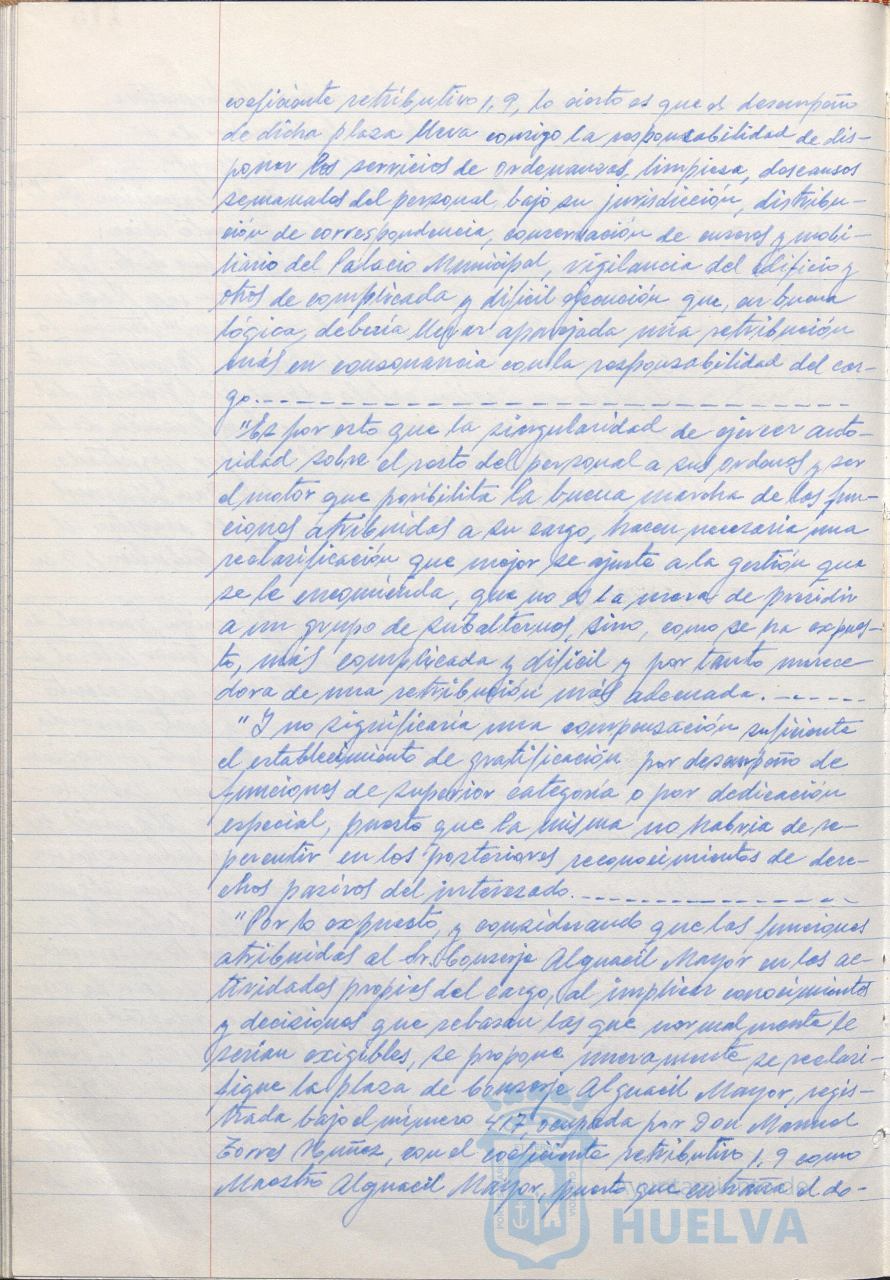 coeficiente retributivo 1,9, lo cierto es que el desempeño
de dicha plaza lleva consigo la responsabilidad de dis-
poner los servicios de ordenanzas, limpieza, descansos
semanales del personal bajo su jurisdicción, distribu-
ción de correspondencia, conservación de enseres y mobi-
liario del Palacio Municipal, vigilancia del edificio y
otros de complicada y difícil ejecución que, en buena
lógica, debería llevar aparejada una retribución
más en consonancia con la responsabilidad del car-
go.
"Es por esto que la singularidad de ejercer auto-
ridad sobre el resto del personal a sus ordenes y ser
el motor que posibilita la buena marcha de las fun-
ciones atribuidas a su cargo, hacen necesaria una
reclasificación que mejor se ajuste a la gestión que
se le encomienda, que no es la mera de presidir
a un grupo de subalternos, sino, como se ha expues-
to, más complicada y difícil y por tanto merece
dora de una retribución más adecuada.
"Y no significaría una compensación suficiente
el establecimiento de gratificación por desempeño de
funciones de superior categoría o por dedicación
especial, puesto que la misma no habría de re-
percutir en los posteriores reconocimientos de dere-
chos pasivos del interesado.
"Por lo expuesto, y considerando que las funciones
atribuidas al Sr. Conserje Alguacil Mayor en las ac-
tividades propias del cargo, al implicar conocimientos
y decisiones que rebasan las que normalmente le
serían exigibles, se propone nuevamente se reclasi-
fique la plaza de Conserje Alguacil Mayor, regis-
trada bajo el número 417, ocupada por Don Manuel
Torres Núñez, con el coeficiente retributivo 1,9 como
Maestro Alguacil Mayor, puesto que entraña el do-
Ayuntamiento de
HUELVA